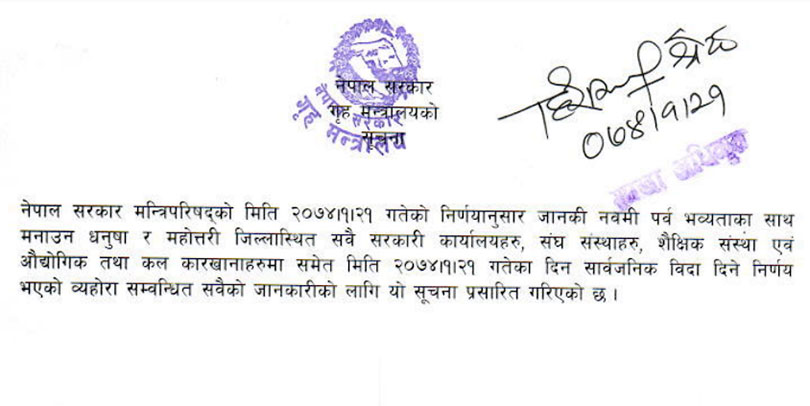 नेपाल सरकार
गृह मन्त्रालयको
सूचना
नेपाल सरकार
गृह मन्त्रालय
श्रेष्ठ
०७४।१।२१
नेपाल सरकार मन्त्रिपरिषद्को मिति २०७४।१।२१ गतेको निर्णयानुसार जानकी नवमी पर्व भव्यताका साथ
मनाउन धनुषा र महोत्तरी जिल्लास्थित सवै सरकारी कार्यालयहरु, संघ संस्थाहरु, शैक्षिक संस्था एवं
औद्योगिक तथा कल कारखानाहरुमा समेत मिति २०७४।१।२१ गतेका दिन सार्वजनिक विदा दिने निर्णय
भएको व्यहोरा सम्वन्धित सवैको जानकारीको लागि यो सूचना प्रसारित गरिएको छ ।